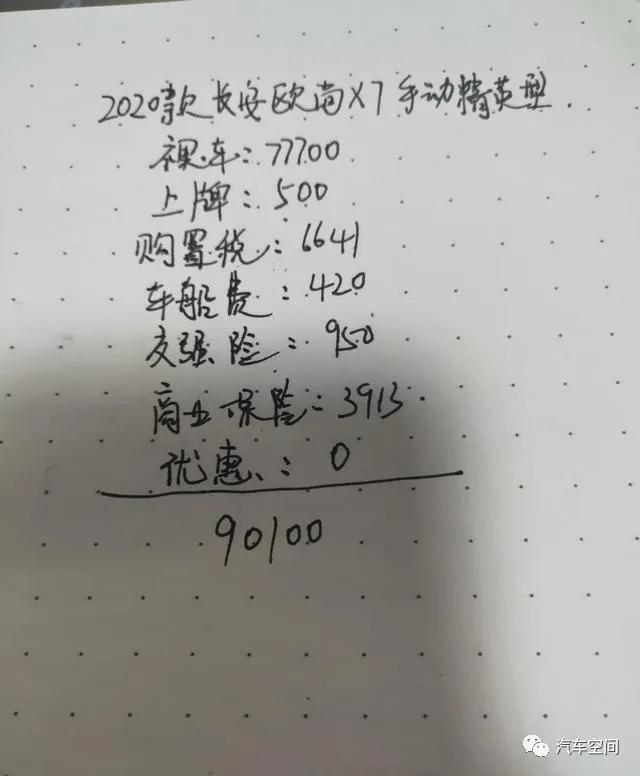 2020款长安欧尚X7手动精英型
裸车:77700
上牌:500
购置税:6641
车船费:420
交强险:950
商业保险:3913
优惠:0
90100
汽车空间